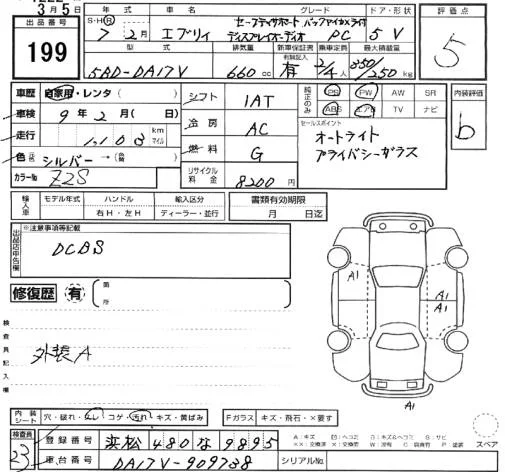 3月5日
出品番号
199
年式 車名 グレード ドア・形状
S・H・R 7年 2月 エブリィ セーフティサポート バックアイカメラ付
ディスプレイオーディオ PC 5 V
評価点
5
型式 排気量 新車保証書 乗車定員 最大積載量
有効記入
5BD-DA17V 660cc 有 2/4人 350/250kg
車歴 自家用・レンタ ( )
車検 9年 2月 ( 日)
走行 km マイル
色 (元色) シルバー → (色替) ( )
カラーNo Z2S
シフト IAT
冷房 AC
燃料 G
リサイクル料金 8200円
純正のみ
PS PW AW SR
ABS エアB TV ナビ
セールスポイント
オートライト
プライバシーガラス
内装評価
b
輸入車 モデル年式 ハンドル 輸入区分
右H・左H ディーラー・並行
書類有効期限
月 日迄
出品店申告欄
※注意事項等記載
DCBS
修復歴 有 ( 箇所 )
検査員記入欄
外装A
A1
A1
A1
A1
内装シート 穴・破れ・スレ・コゲ・汚れ・キズ・黄ばみ
Fガラス キズ・飛石・×要す
検査員
23
登録番号 浜松 480 な 9895
車台番号 DA17V-909738
シリアルNo.
スペア